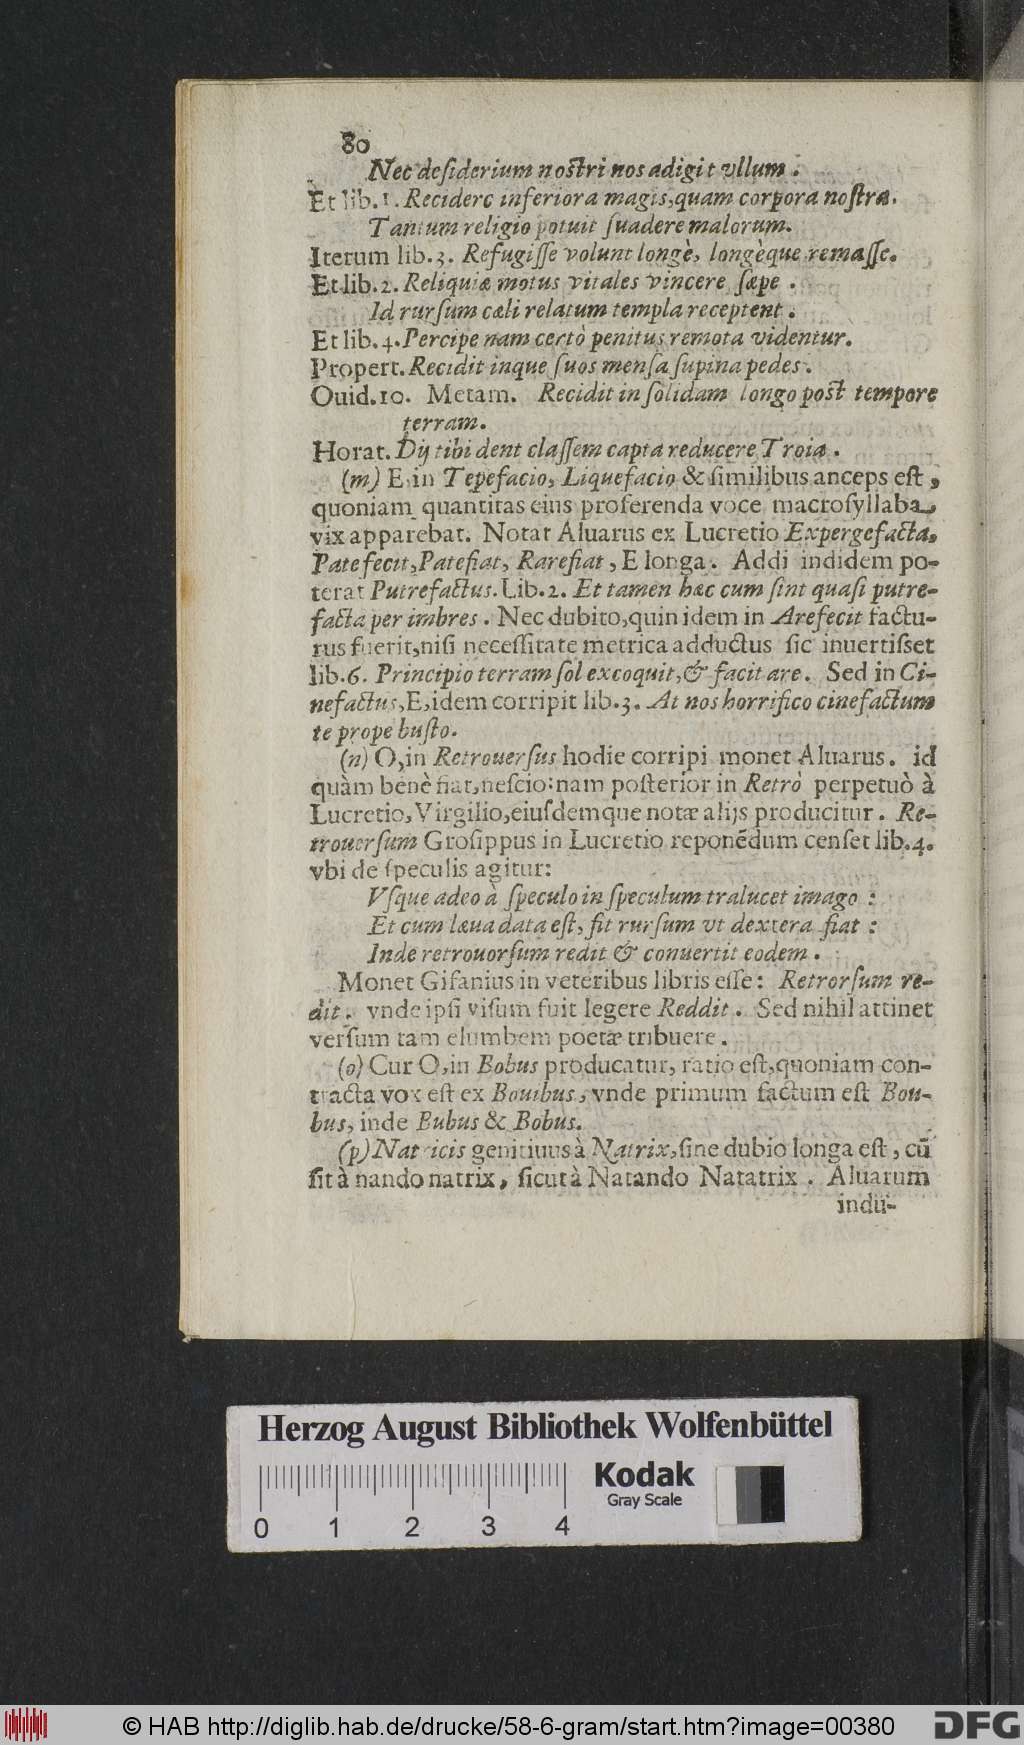 80
Nec desiderium nostri nos adigit vllum.
Et lib. 1. Recidere inferiora magis, quam corpora nostra.
Tantum religio potuit suadere malorum.
Iterum lib. 3. Refugisse volunt longè, longèque remasse.
Et lib. 2. Reliquiæ motus vitales vincere sæpe.
Id rursum cæli relatum templa receptent.
Et lib. 4. Percipe nam certò penitus remota videntur.
Propert. Recidit inque suos mensa supina pedes.
Ouid. 10. Metam. Recidit in solidam longo post tempore
terram.
Horat. Dij tibi dent classem capta reducere Troia.
(m) E, in Tepefacio, Liquefacio & similibus anceps est,
quoniam quantitas eius proferenda voce macrosyllaba,
vix apparebat. Notat Aluarus ex Lucretio Expergefacta,
Patefecit, Patefiat, Rarefiat, E longa. Addi indidem po-
terat Putrefactus. Lib. 2. Et tamen hæc cum sint quasi putre-
facta per imbres. Nec dubito, quin idem in Arefecit factu-
rus fuerit, nisi necessitate metrica adductus sic inuertisset
lib. 6. Principio terram sol excoquit, & facit are. Sed in Ci-
nefactus, E, idem corripit lib. 3. At nos horrifico cinefactum
te prope busto.
(n) O, in Retrouersus hodie corripi monet Aluarus. id
quàm benè fiat, nescio: nam posterior in Retrò perpetuò à
Lucretio, Virgilio, eiusdemque notæ alijs producitur. Re-
trouersum Grosippus in Lucretio reponẽdum censet lib. 4.
vbi de speculis agitur:
Vsque adeo à speculo in speculum tralucet imago:
Et cum læua data est, fit rursum vt dextera fiat:
Inde retrouorsum redit & conuertit eodem.
Monet Gifanius in veteribus libris esse: Retrorsum re-
dit. vnde ipsi visum fuit legere Reddit. Sed nihil attinet
versum tam elumbem poetæ tribuere.
(o) Cur O, in Bobus producatur, ratio est, quoniam con-
tracta vox est ex Bouibus, vnde primum factum est Bou-
bus, inde Bubus & Bobus.
(p) Natricis genitiuus à Natrix, sine dubio longa est, cũ
sit à nando natrix, sicut à Natando Natatrix. Aluarum
indu-
Herzog August Bibliothek Wolfenbüttel
Kodak
Gray Scale
0 1 2 3 4
© HAB http://diglib.hab.de/drucke/58-6-gram/start.htm?image=00380
DFG